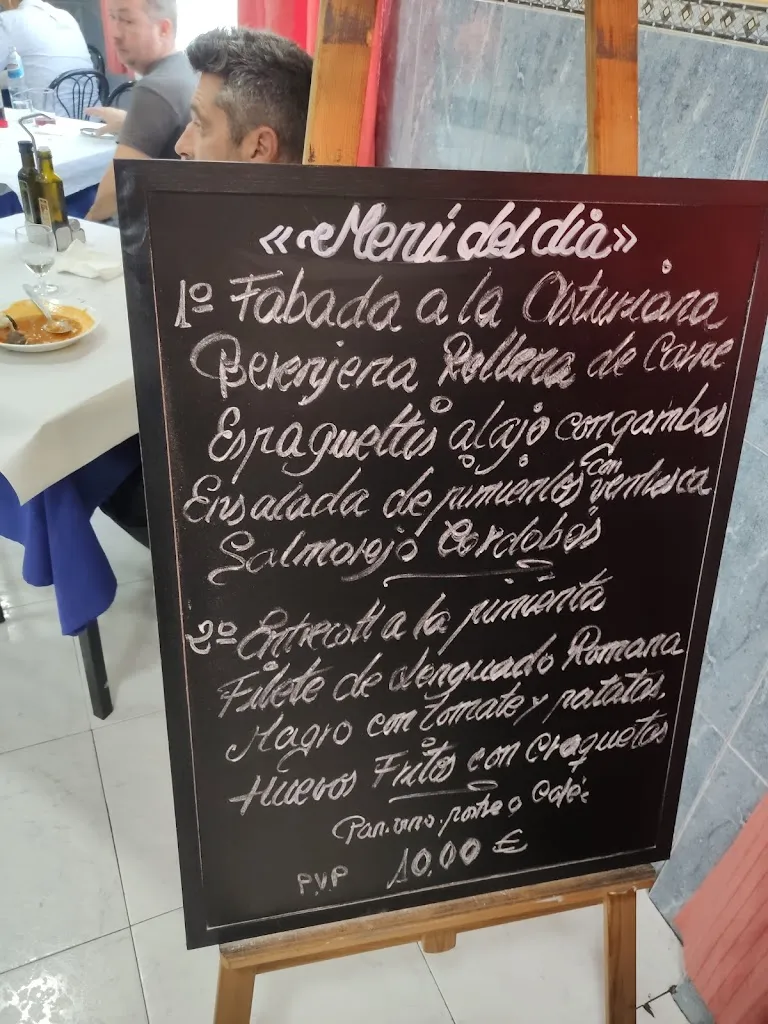 «Menú del dia»
1º Fabada a la Asturiana
Berenjena Rellena de Carne
Espaguettis al ajo con gambas
Ensalada de pimientos con ventresca
Salmorejo Cordobés
2º Entrecott a la pimienta
Filete de lenguado Romana
Magro con tomate y patatas.
Huevos Fritos con Croquetas
Pan. vino. postre o Café
PVP 10,00 €